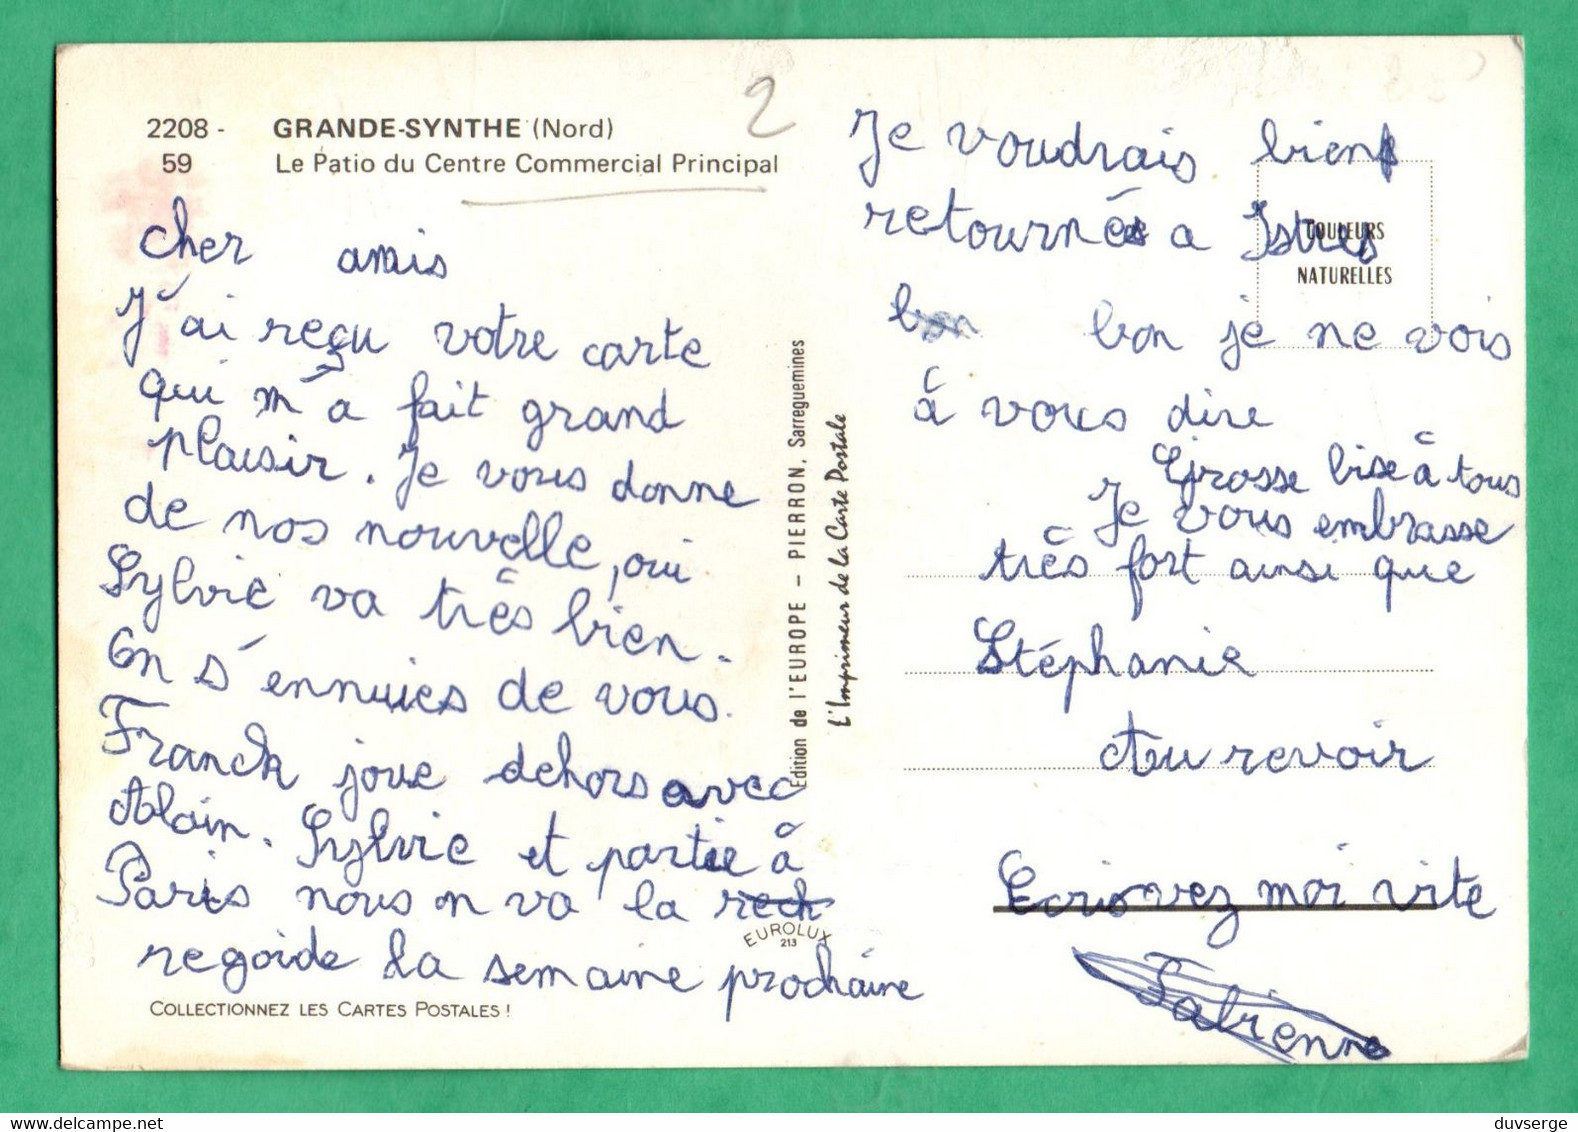 2208 - GRANDE-SYNTHE (Nord)
59 Le Patio du Centre Commercial Principal
2
cher amis
J'ai reçu votre carte
qui m'a fait grand
plaisir. Je vous donne
de nos nouvelle, oui
Sylvie va très bien.
On s'ennuies de vous.
Franck joue dehors avec
Alain. Sylvie et partie à
Paris nous on va la rech
regoide la semaine prochaine
EUROLUX
213
COLLECTIONNEZ LES CARTES POSTALES !
Edition de l'EUROPE - PIERRON, Sarreguemines
L'Imprimeur de la Carte Postale
Je voudrais bien
retourné a Istres
COULEURS
NATURELLES
bon bon je ne vois
à vous dire
Grosse bise à tous
Je vous embrasse
très fort ainsi que
Stéphanie
Au revoir
Ecrivez moi vite
Fabienne
duvserge